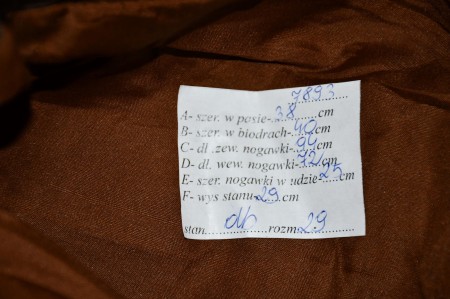 7893
A- szer. w pasie-38cm
B- szer. w biodrach-40cm
C- dł. zew. nogawki-94cm
D- dł. wew. nogawki-72cm
E- szer. nogawki w udzie-25cm
F- wys stanu-29cm
stan db rozm 29